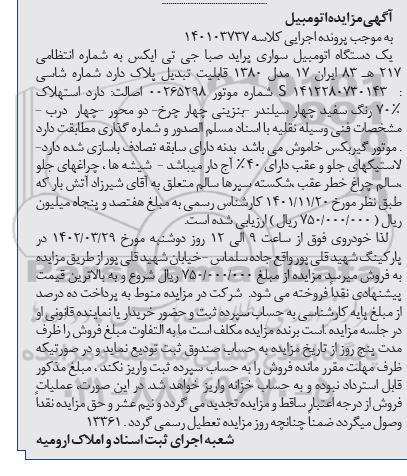 آگهی مزایده اتومبیل
به موجب پرونده اجرایی کلاسه ۱۴۰۱۰۳۷۳۷
یک دستگاه اتومبیل سواری پراید صبا جی تی ایکس به شماره انتظامی
۲۱۷ هـ ۸۳ ایران ۱۷ مدل ۱۳۸۰ قابلیت تبدیل پلاک دارد شماره شاسی
: S ۱۴۱۲۲۸۰۷۳۰۱۴۳ شماره موتور ۰۰۲۶۵۲۹۸ اصالت: دارد استهلاک
: ۷۰٪ رنگ سفید چهار سیلندر -بنزینی چهار چرخ- دو محور -چهار درب -
مشخصات فنی وسیله نقلیه با اسناد مسلم الصدور و شماره گذاری مطابقت دارد
. موتور گیربکس خاموش می باشد بدنه دارای سابقه تصادف بازسازی شده دارد-
لاستیکهای جلو و عقب دارای ۴۰٪ آج دار میباشد - شیشه ها ، چراغهای جلو
،سالم چراغ خطر عقب ،شکسته سپرها سالم متعلق به آقای شیرزاد آتش بار که
طبق نظر مورخ ۱۴۰۱/۱۱/۲۰ کارشناس رسمی به مبلغ هفتصد و پنجاه میلیون
ریال ( ۷۵۰/۰۰۰/۰۰۰ ریال ) ارزیابی شده است.
لذا خودروی فوق از ساعت ۹ الی ۱۲ روز دوشنبه مورخ ۱۴۰۲/۰۳/۲۹ در
پارکینگ شهید قلی پور واقع جاده سلماس - خیابان شهید قلی پور از طریق مزایده
به فروش میرسد مزایده از مبلغ ۷۵۰/۰۰۰/۰۰۰ ریال شروع و به بالاترین قیمت
پیشنهادی نقداً فروخته می شود. شرکت در مزایده منوط به پرداخت ده درصد
از مبلغ پایه کارشناسی به حساب سپرده ثبت و حضور خریدار یا نماینده قانونی او
در جلسه مزایده است برنده مزایده مکلف است ما به التفاوت مبلغ فروش را ظرف
مدت پنج روز از تاریخ مزایده به حساب صندوق ثبت تودیع نماید و در صورتیکه
ظرف مهلت مقرر مانده فروش را به حساب سپرده ثبت واریز نکند ، مبلغ مذکور
قابل استرداد نبوده و به حساب خزانه واریز خواهد شد. در این صورت، عملیات
فروش از درجه اعتبار ساقط و مزایده تجدید می گردد و نیم عشر و حق مزایده نقداً
وصول میگردد ضمناً چنانچه روز مزایده تعطیل رسمی گردد . ۱۳۳۶۱
شعبه اجرای ثبت اسناد و املاک ارومیه